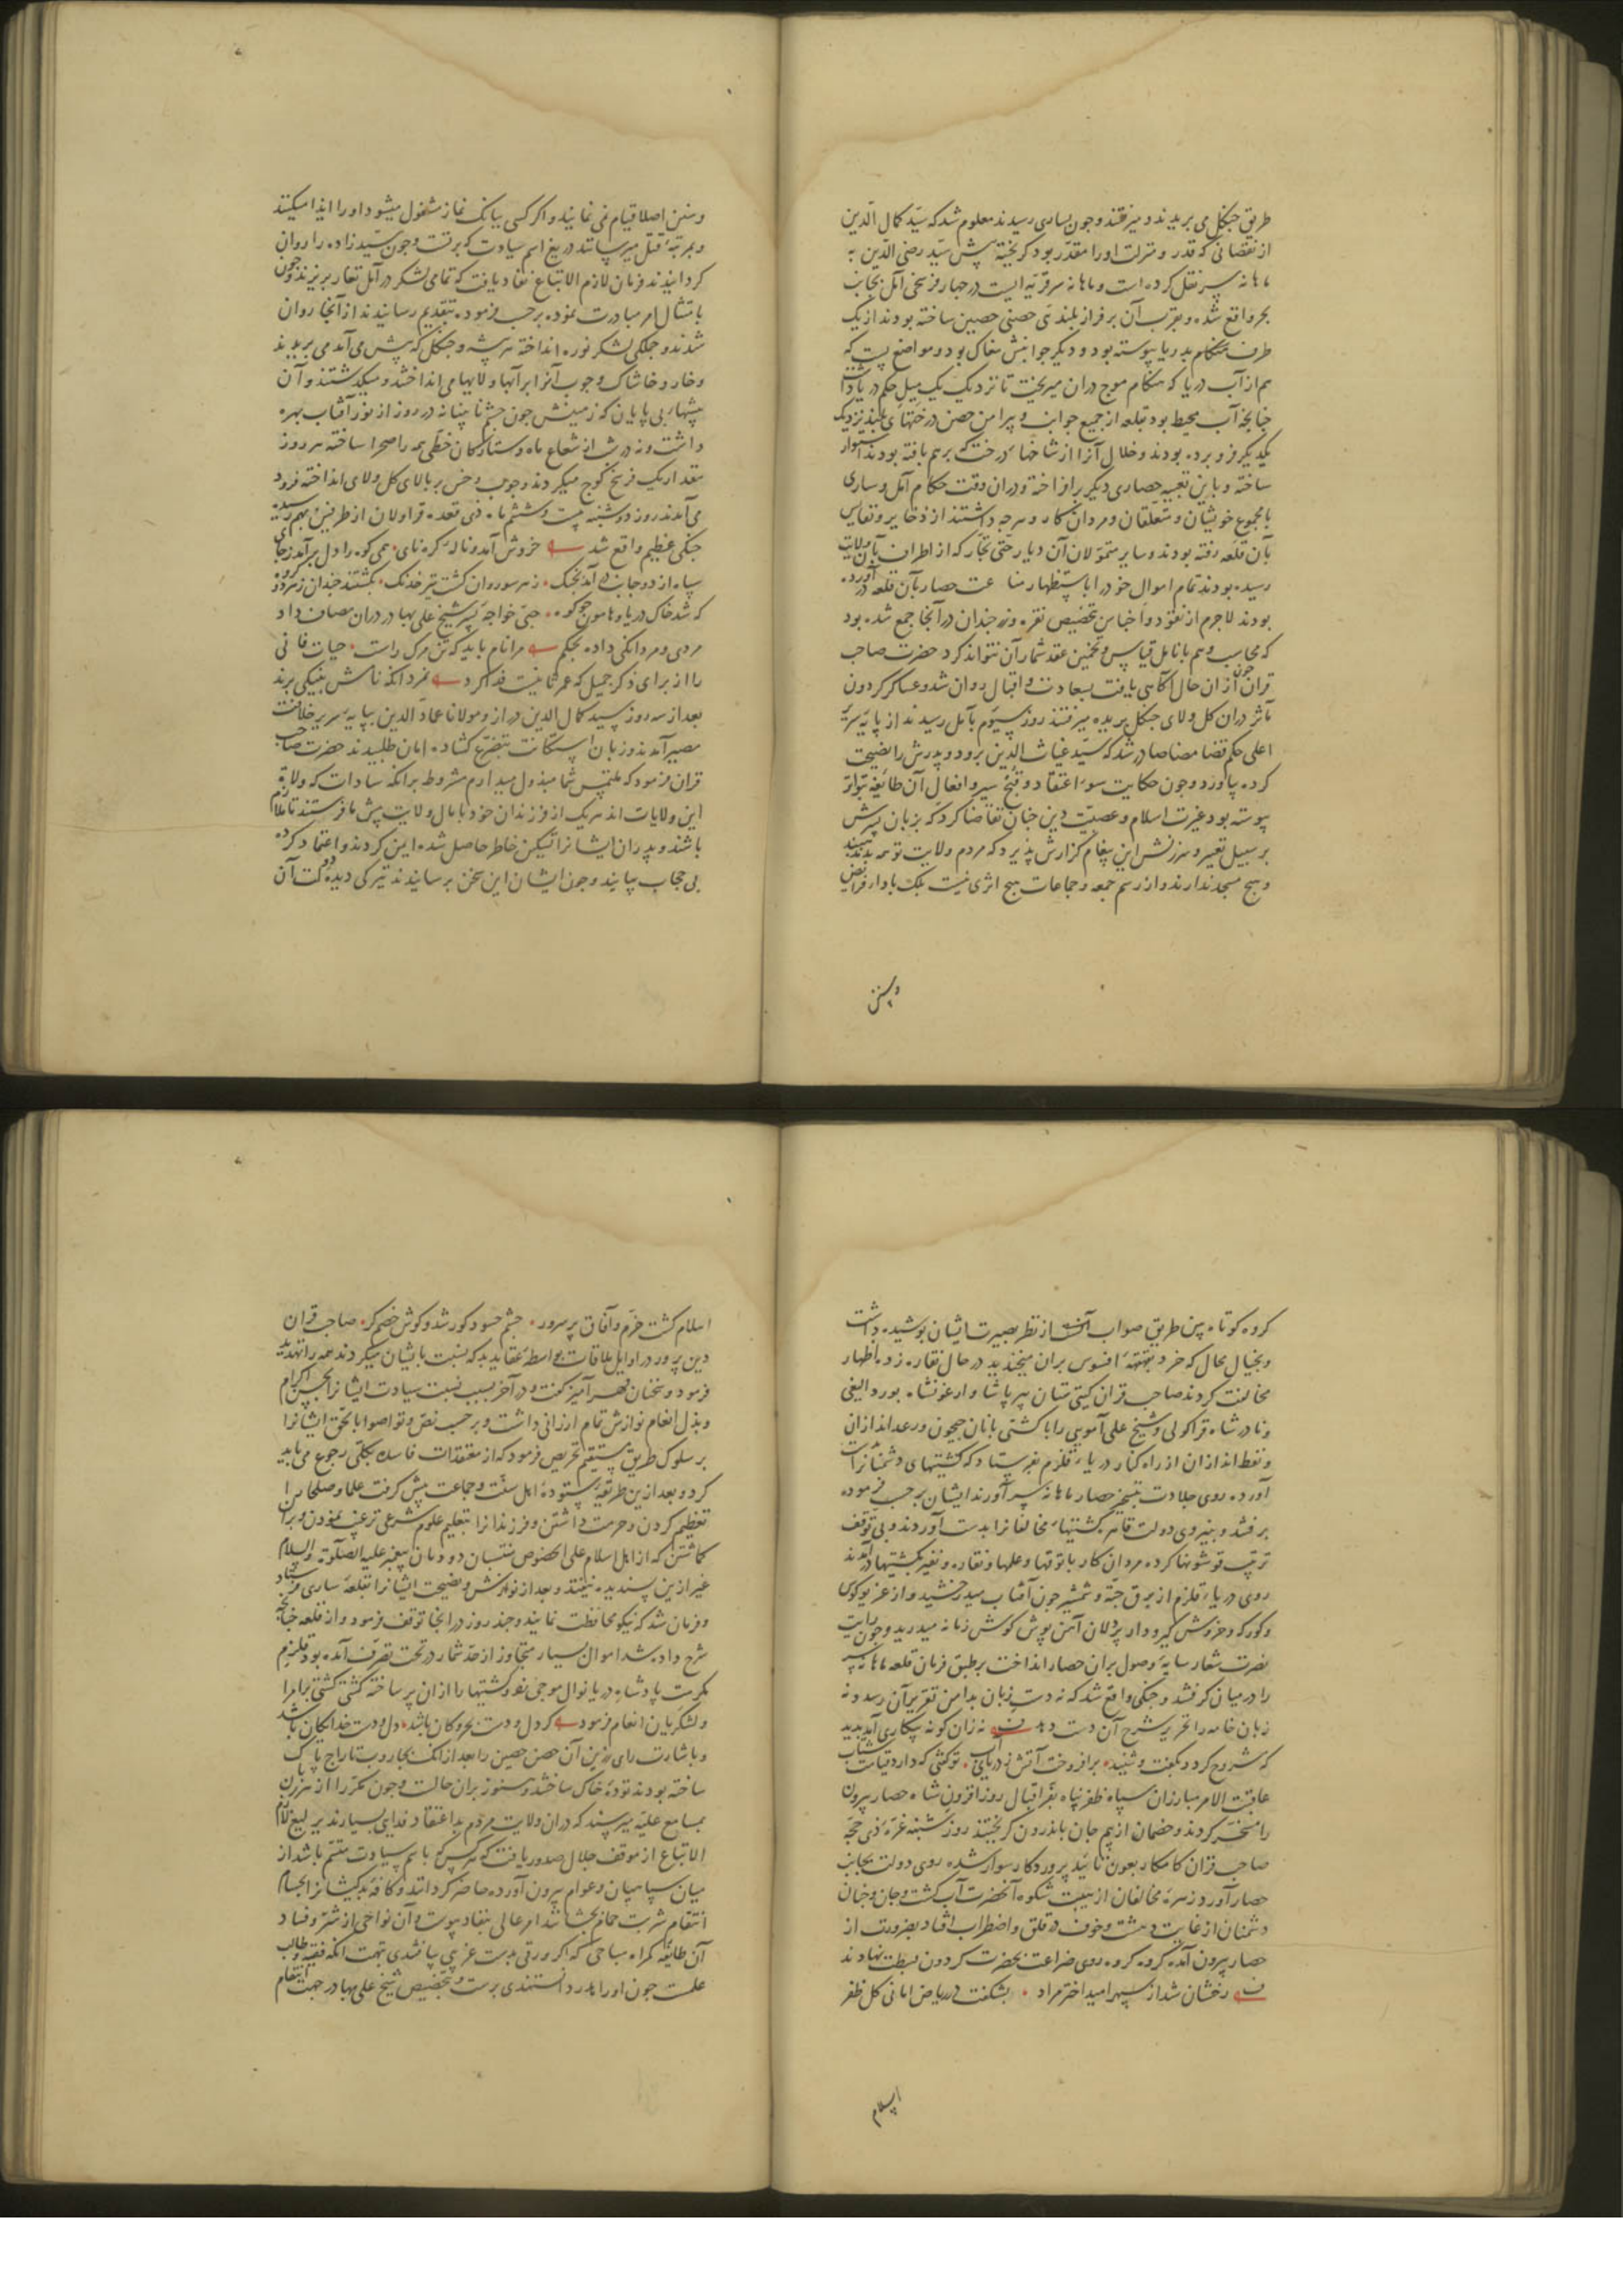 طریق جنکل می بریدند و میرفتند و چون بساری رسیدند معلوم شد که سید کمال الدین
از نقصانی که قدر و منزلت اورا مقدر بود کریخته پیش سید رضی الدین به
ماهانه سر نقل کرده است و ماهانه سر قریه ایست در چهار فرسخی آمل بجانب
بحر واقع شده و بقرب آن بر فراز بلندی حصنی حصین ساخته بودند از یک
طرف بدریا پیوسته بود و دیکر جوانبش مغاک بود و مواضع پست که
هم از آب دریا که هنکام موج دران میریخت تا نزدیک یک میل حکم دریا داشت
چنانچه آب محیط بود بقلعه از جمیع جوانب و پیرامن حصن درختهای بلند نزدیک
یکدیکر فرو برده بودند و خلال آنرا از شاخهاء درخت که برهم بافته بودند استوار
ساخته و باین تعبیه حصاری دیکر برافراخته و دران وقت حکام آمل و ساری
با مجموع خویشان و متعلقان و مردان کار و هرچه داشتند از ذخایر و نفایس
بآن قلعه رفته بودند و سایر متمولان آن دیار حتی تجار که از اطراف بآن ولایت
رسیده بودند تمام اموال خود را باستظهار مناعت حصار بآن قلعه در آورده
بودند لاجرم از نقود و اجناس بتخصیص نقره و زر چندان در آنجا جمع شده بود
که محاسب وهم بانامل قیاس و تخمین عقد شمار آن نتواند کرد حضرت صاحب
قران چون ازان حال آکاهی یافت بسعادت و اقبال روان شد و عساکر کردون
مآثر دران کل و لای جنکل بریده میرفتند روز سیوم بآمل رسیدند از پایه سریر
اعلی حکم قضا مضا صادر شد که سید غیاث الدین برود و پدرش را نصیحت
کرده بیاورد و چون حکایت سوء اعتقاد و قبح سیر و افعال آن طائفه بتواتر
پیوسته بود غیرت اسلام و عصبیت دین چنان تقاضا کرد که بزبان پسرش
بر سبیل تعییر و سرزنش این پیغام کزارش پذیرد که مردم ولایت تو همه بدمذهبند
و هیچ مسجد ندارند و از رسم جمعه و جماعات هیچ اثری نیست بلکه بادا فرایض
وسنن
وسنن اصلا قیام نمی نمایند و اکر کسی ببانک نماز مشغول میشود اورا ایذا میکنند
و بمرتبه قتل میرسانند دریغ اسم سیادت که بر تست و چون سیدزاده را روان
کردانیدند فرمان لازم الاتباع نفاد یافت که تمامی لشکر در آمل تغار بریزند و چون
بامتثال امر مبادرت نموده برحسب فرموده بتقدیم رسانیدند از آنجا روان
شدند و جلکی لشکر نوره انداخته هر بیشه و جنکل که پیش می آمد می بریدند
و خار و خاشاک و چوب آنرا بر آبها و لایها می انداختند و میکذشتند و آن
بیشهاء بی پایان که زمینش چون چشم نابینا نه در روز از نور آفتاب بهره
داشت و نه در شب از شعاع ماه و ستارکان خطی همه را صحرا ساخته هر روز
مقدار یک فرسخ کوچ میکردند و چوب و خس بر بالای کل و لای انداخته فرود
می آمدند روز دوشنبه بیست و ششم ماه ذی قعده قراولان از طرفین بهم رسیده
جنکی عظیم واقع شد خروش آمد و ناله کره نای همی کوه را دل برآمد ز جای
سپاه از دو جانب درآمد بجنک ز هر سو روان کشت تیر خدنک بکشتند چندان ز هر دو کروه
که شد خاک دریا و هامون چو کوه جنی خواجه پسر شیخ علی بهادر دران مصاف داد
مردی و مردانکی داده بحکم مرا نام باید که تن مرک راست حیات فانی
را از برای ذکر جمیل که عمر ثانیست فدا کرد نمرد آنکه نامش بنیکی برند
بعد از سه روز سید کمال الدین دراز و مولانا عماد الدین بپایه سریر خلافت
مصیر آمدند و زبان استکانت بتضرع کشاده امان طلبیدند حضرت صاحب
قران فرمود که ملتمس شما مبذول میدارم مشروط برآنکه سادات که ولاة
این ولایات اند هریک از فرزندان خود با مال ولایت پیش ما فرستند تا ملازم
باشند و پدران ایشانرا تسکین خاطر حاصل شده ایمن کردند و اعتماد کرده
بی حجاب بیایند و چون ایشان این سخن برسانیدند تیرکی دیده دولت آن
کروه کوتاه بین طریق صواب از نظر بصیرت ایشان پوشیده داشت
و بخیال محال که خرد بقهقهه افسوس بران میخندید در حال نقاره زده اظهار
مخالفت کردند صاحب قران کیتی ستان پیر پاشا و ارغونشاه بوردالیغی
و نادر شاه قراکولی و شیخ علی آمویی را با کشتی بانان جیحون و رعداندازان
و نفط اندازان از راه کنار دریاء قلزم بفرستاد که کشتیهای دشمنانرا بدست
آورده روی جلادت بتسخیر حصار ماهانه سر آورند ایشان برحسب فرموده
برفتند و بنیروی دولت قاهره کشتیهاء مخالفانرا بدست آوردند و بی توقف
ترتیب قوشونها کرده مردان کار با توقها و علمها و نقاره و نفیر بکشتیها درآمدند
روی دریاء قلزم از برق جبه و شمشیر چون آفتاب میدرخشید و از غریو کوس
و کورکه و خروش کیرودار یلان آهن پوش کوش زمانه میدرید و چون رایت
نصرت شعار سایه وصول بران حصار انداخت برطبق فرمان قلعه ماهانه سر
را در میان کرفتند و جنکی واقع شد که نه دست زبان بدامن تقریر آن رسد و نه
زبان خامه را تحریر شرح آن دست دهد نه زان کونه پیکاری آمد پدید
که شرح کرد و بکفت و شنید برافروخت آتش ز دریای آب تو کفتی که دارد قیامت شتاب
عاقبت الامر مبارزان سپاه ظفرپناه بفر اقبال روزافزون شاه حصار بیرون
را مسخر کردند و خصمان از بیم جان باندرون کریختند روز شنبه غره ذی حجه
صاحب قران کامکار بعون تایید پروردکار سوار شده روی دولت بجانب
حصار آورد زهره مخالفان از هیبت شکوه آنحضرت آب کشت و جان و جنان
دشمنان از غایت دهشت و خوف در قلق و اضطراب افتاد بضرورت از
حصار بیرون آمده کروه کروه روی ضراعت بحضرت کردون بسطت نهادند
رخشان شد از سپهر امید اختر مراد بشکفت در ریاض امانی کل ظفر
اسلام
اسلام کشت خرم و آفاق پرسرور چشم حسود کور شد و کوش خصم کر صاحب قران
دین پرور در اوایل ملاقات بواسطه عقاید بد که نسبت بایشان میکردند همه را تهدید
فرمود و سخنان قهرآمیز کفت و در آخر بسبب نسبت سیادت ایشانرا بحسن اکرام
و بذل انعام نوازش تمام ارزانی داشت و برحسب نص و تواصوا بالحق ایشانرا
بر سلوک طریق مستقیم تحریص فرمود که از معتقدات فاسد بکلی رجوع می باید
کرد و بعد ازین طریقه ستوده اهل سنت و جماعت پیش کرفت علما و صلحا را
تعظیم کردن و حرمت داشتن و فرزندانرا بتعلیم علوم شرعی ترغیب نمودن و بران
کماشتن که از اهل اسلام علی الخصوص منتسبان دودمان پیغمبر علیه الصلوة والسلام
غیر ازین پسندیده نیفتد و بعد از نوازش و نصیحت ایشانرا بقلعه ساری فرستاد
و فرمان شد که نیکو محافظت نمایند و چند روز در آنجا توقف فرمود و از قلعه چنانچه
شرح داده شد اموال بسیار متجاوز از حد شمار در تحت تصرف آمده بود قلزم
مکرمت پادشاه دریا نوال موجی نمود و کشتیها را ازان پر ساخته کشتی کشتی بامرا
و لشکریان انعام فرمود کر دل و دست بحر و کان باشد دل و دست خدایکان باشد
و باشارت رای رزین آن حصن حصین را بعد از آنک بجاروب تاراج پاک
ساخته بودند توده خاک ساختند و هنوز بران حالت و چون مکرر را از هر زبان
بمسامع علیه میرسید که دران ولایت مردم بداعتقاد فدایی بسیارند یرلیغ لازم
الاتباع از موقف جلال صدور یافت که هرکس که باسم سیادت متسم باشد از
میان سپاهیان و عوام بیرون آورده حاضر کردانند و کافه بدکیشانرا بحسام
انتقام شربت حمام بچشانند امر عالی بنفاد پیوست و آن نواحی از شر و فساد
آن طایفه کمراه مباحی که اکر ورقی بدست غریبی یافتندی بتهمت آنکه فقیه و طالب
علمست خون اورا هدر دانستندی برست و بتخصیص شیخ علی بهادر جهت انتقام